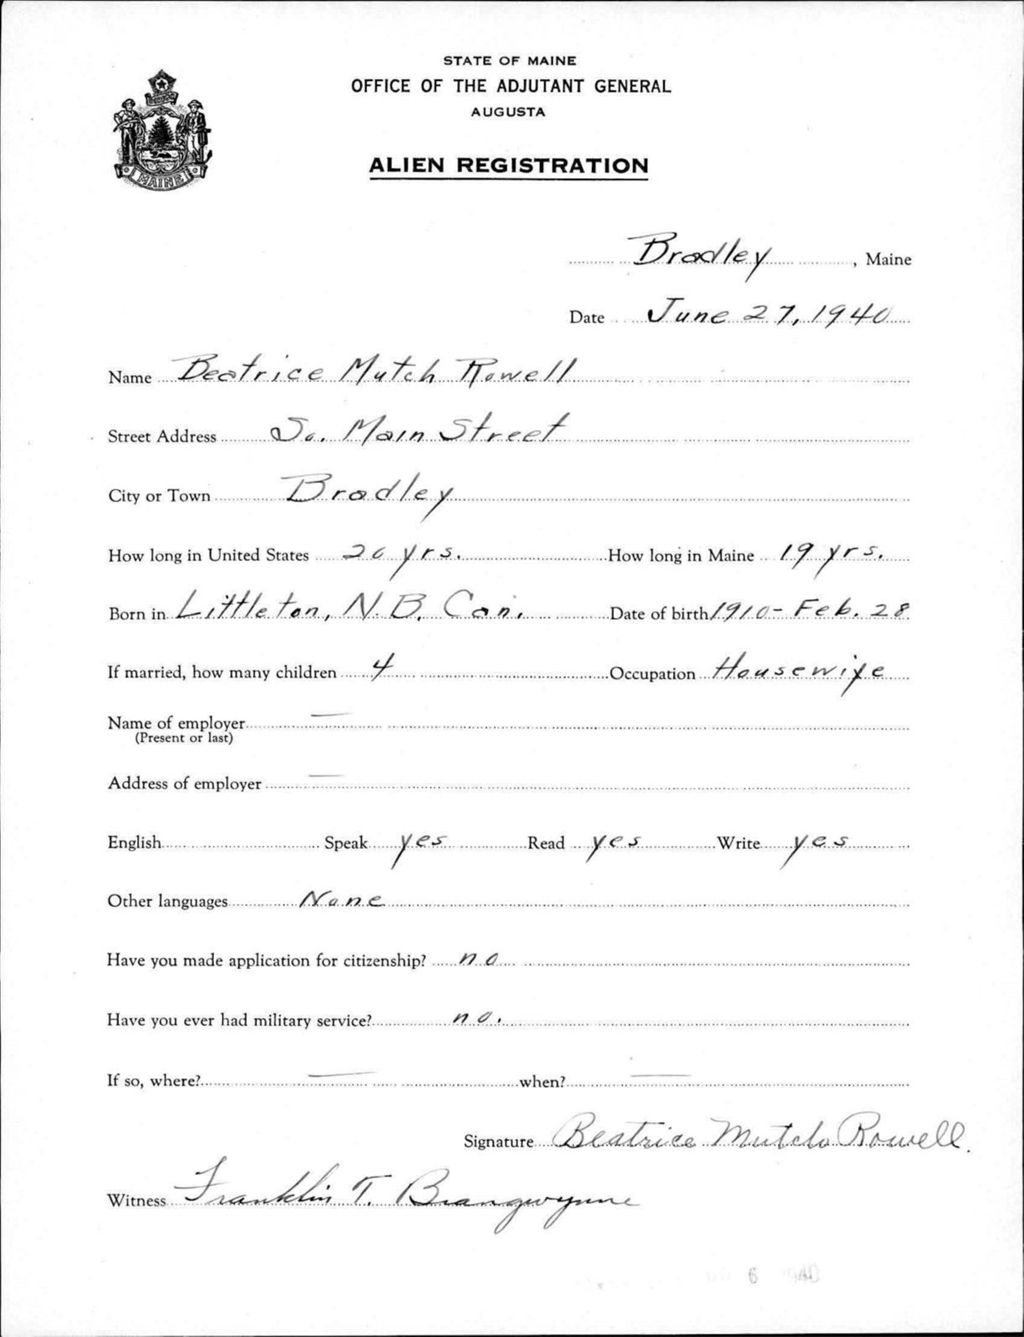 STATE OF MAINE
OFFICE OF THE ADJUTANT GENERAL
AUGUSTA
ALIEN REGISTRATION
MAINE
Bradley, Maine
Date June 27, 1940
Name Beatrice Mutch Rowell
Street Address So. Main Street
City or Town Bradley
How long in United States 20 yrs. How long in Maine 19 yrs.
Born in Littleton, N.B. Can. Date of birth 1910 - Feb. 28
If married, how many children 4 Occupation Housewife
Name of employer —
(Present or last)
Address of employer —
English Speak yes Read yes Write yes
Other languages None
Have you made application for citizenship? no
Have you ever had military service? no.
If so, where? — when? —
Signature Beatrice Mutch Rowell.
Witness Franklin T. Brangwynne